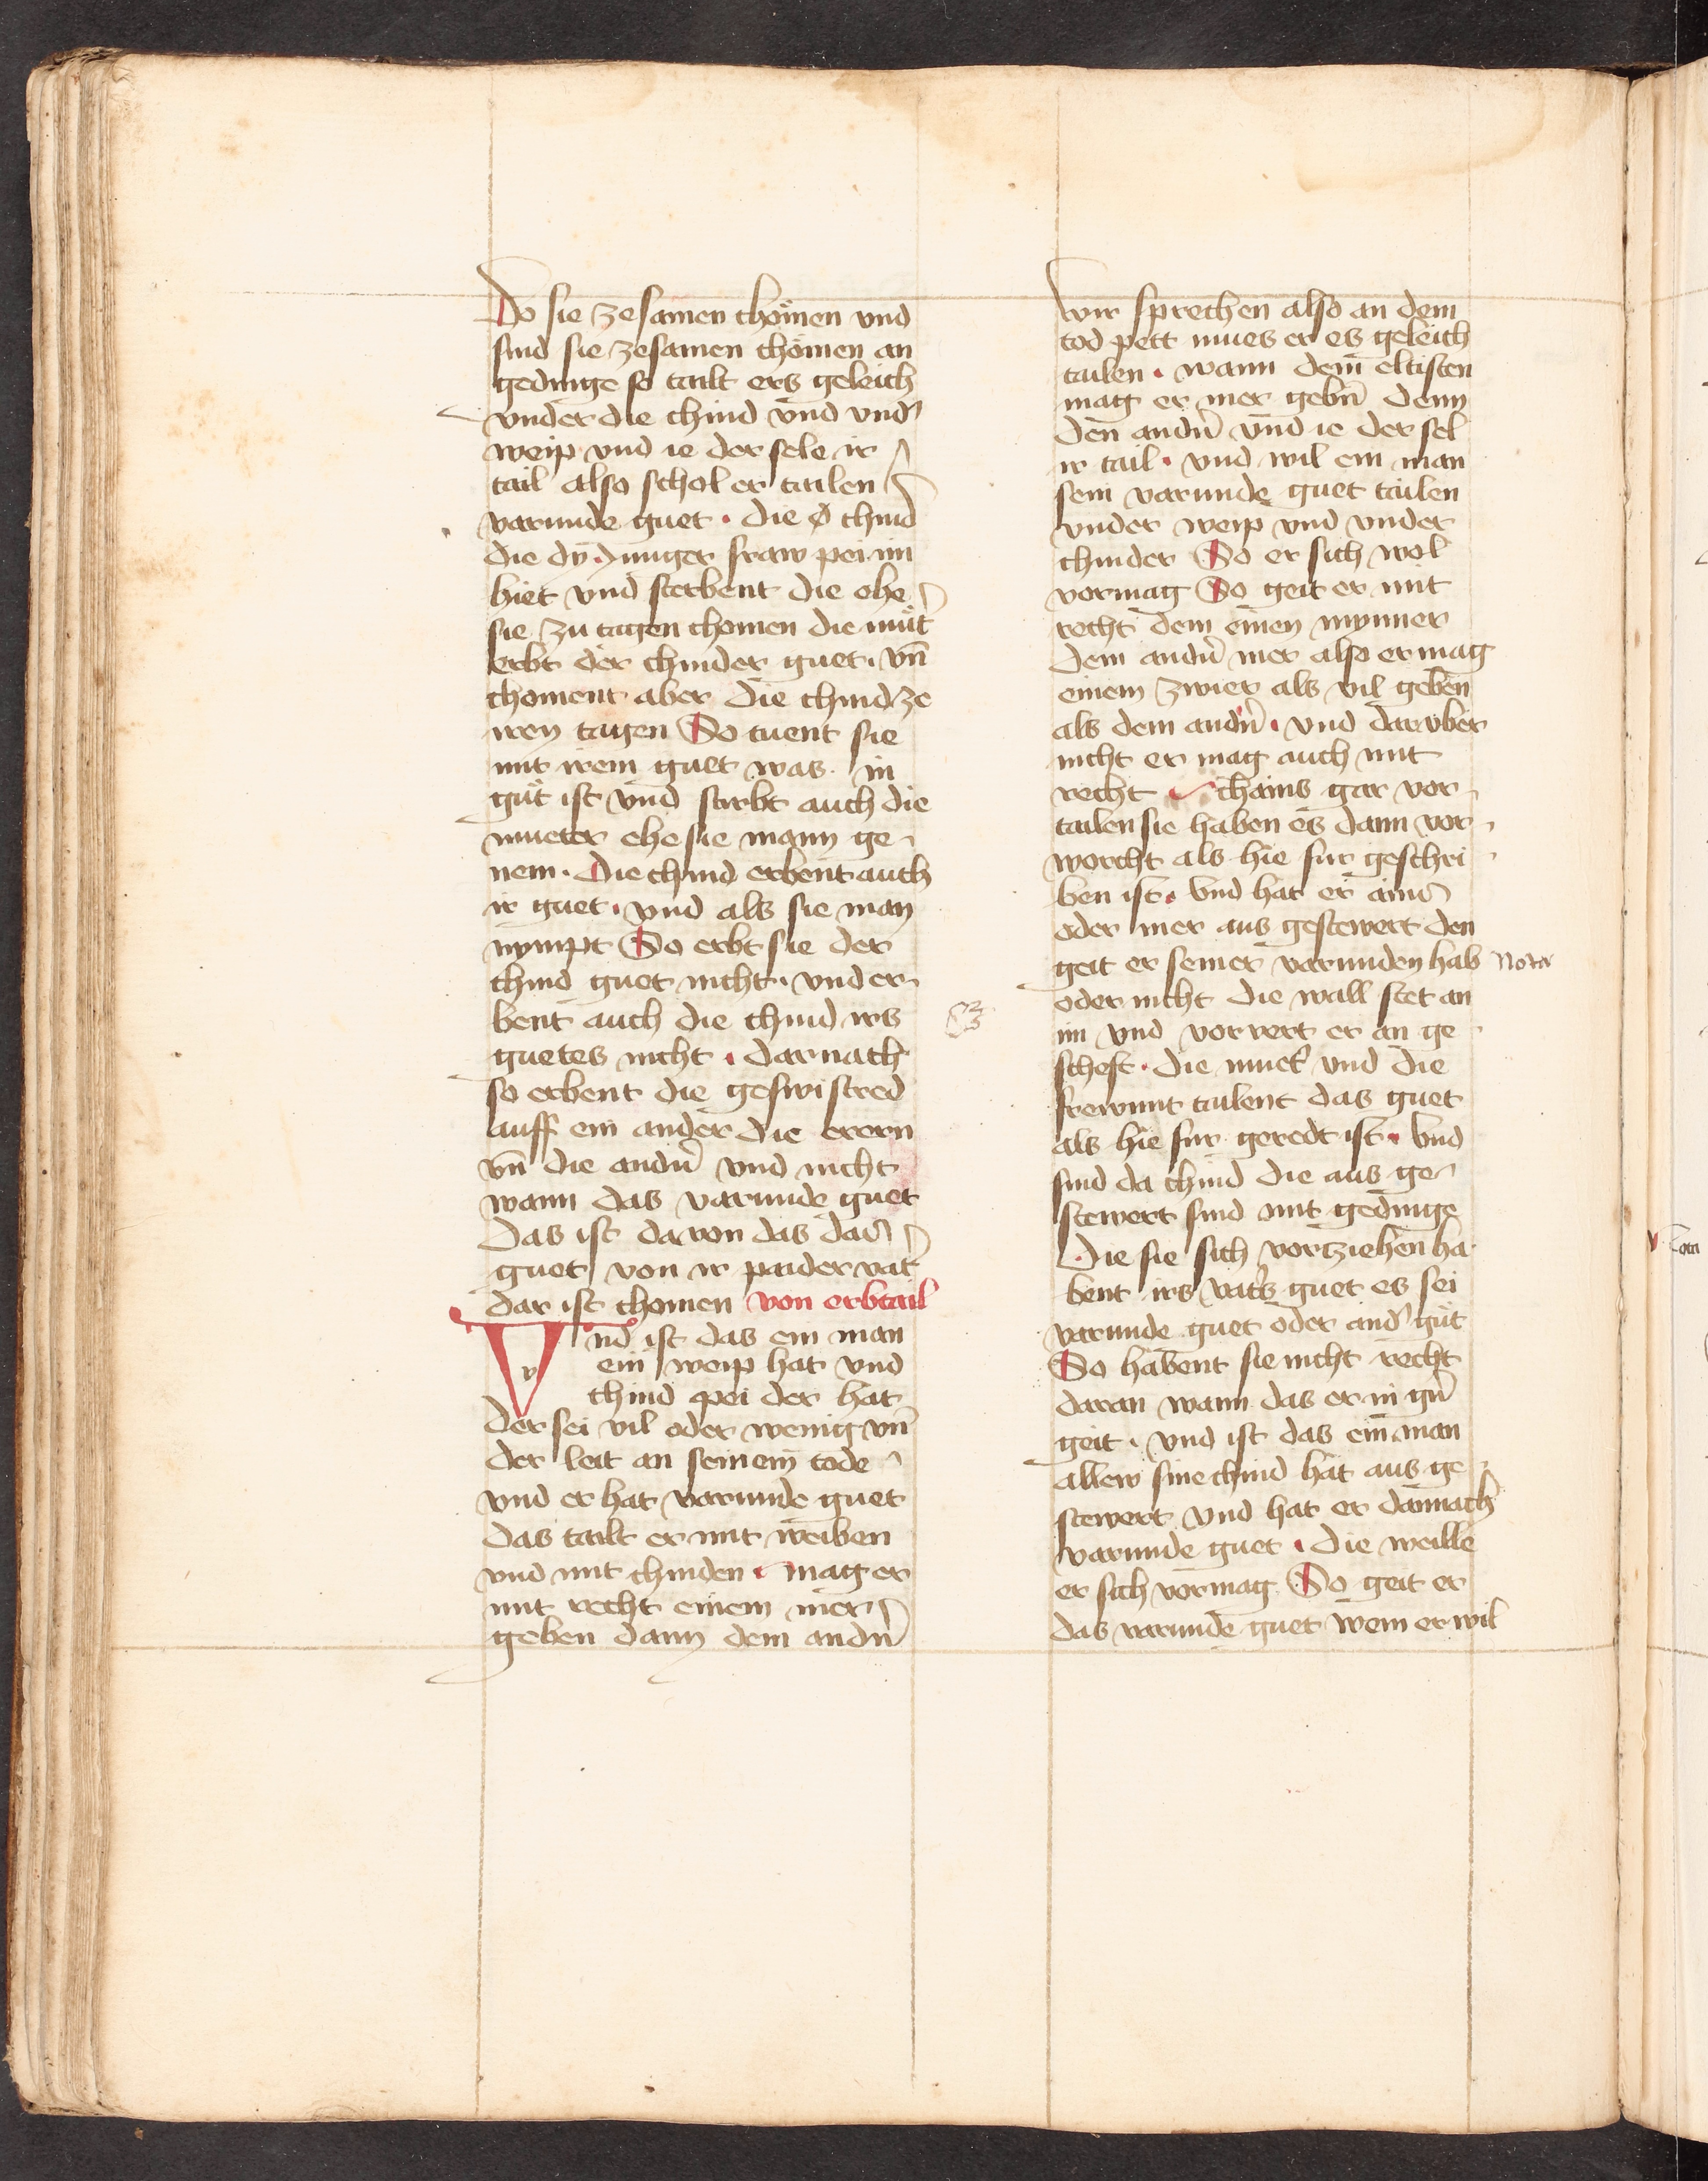 Do sie ze samen chömen vnd
sind sie zesamen chömen an
gedinge so tailt ers geleich
vnder die chind vnd vnd̉
weip vnd ie der sele ir
tail also schol er tailen
varunde guet · die chind
die dy junger fraw pei im
hiet vnd sterbent die ehe
sie zu tagen chomen die mut̉
erbt der chinder guet · vn̄
choment aber die chind ze
iren tagen So tuent sie
mit irem guet was in
gut ist vnd stirbt auch die
mueter ehe sie mann ge
nem · Die chind erbent auch
ir guet · vnd als sie man
nympt So erbt sie der
chind guet nicht · vnd er
bent auch die chind irs
guetes nicht · darnach
so erbent die geswistred
auff ein ander die erern
vn̄ die andn̉ vnd nicht
wann das varunde guet
Das ist da von das daz
guet von ir paider vat̉
dar ist chomen von erbtail
Vnd ist das ein man
ein weip hat vnd
chind pei der hat
der sei vil oder wenig vn̄
der leit an seinem tode
vnd er hat varunde guet
das tailt er mit weiben
vnd mit chinden · mag er
mit recht einem mer
geben dann dem andn̉
wir sprechen also an dem
tod pett mues er es geleich
tailen · wann dem eltisten
mag er mer gebn̄ denn
den andn̉ vnd ie der sel
ir tail · vnd wil ein man
sein varunde guet tailen
vnder weip vnd vnder
chinder So er sich wol
vormag So geit er mit
recht dem einen mynner
dem andn̉ mer also er mag
einem zwier als vil geben
als dem andn̉ · vnd darvber
nicht er mag auch mit
recht chains gar vor
tailen sie haben es dann vor
worcht als hie fur geschri
ben ist · Vnd hat er ains
oder mer aus gestewert den
geit er seiner varunden hab
Nota
oder nicht die wall stet an
im vnd vorvert er an ge
scheft · die muet̉ vnd die
frewnt tailent das guet
als hie fur geredt ist · Vnd
sind da chind die aus ge
stewert sind mit gedinge
Die sie sich vortziehen ha
bent irs vat̉s guet es sei
varunde guet oder and̉ gut
So habent sie nicht recht
daran wann das er in gn̉
geit · vnd ist das ein man
allew sine chind hat aus ge
stewert vnd hat er dannach
varunde guet · die weille
er sich vormag So geit er
das varunde guet wem er wil